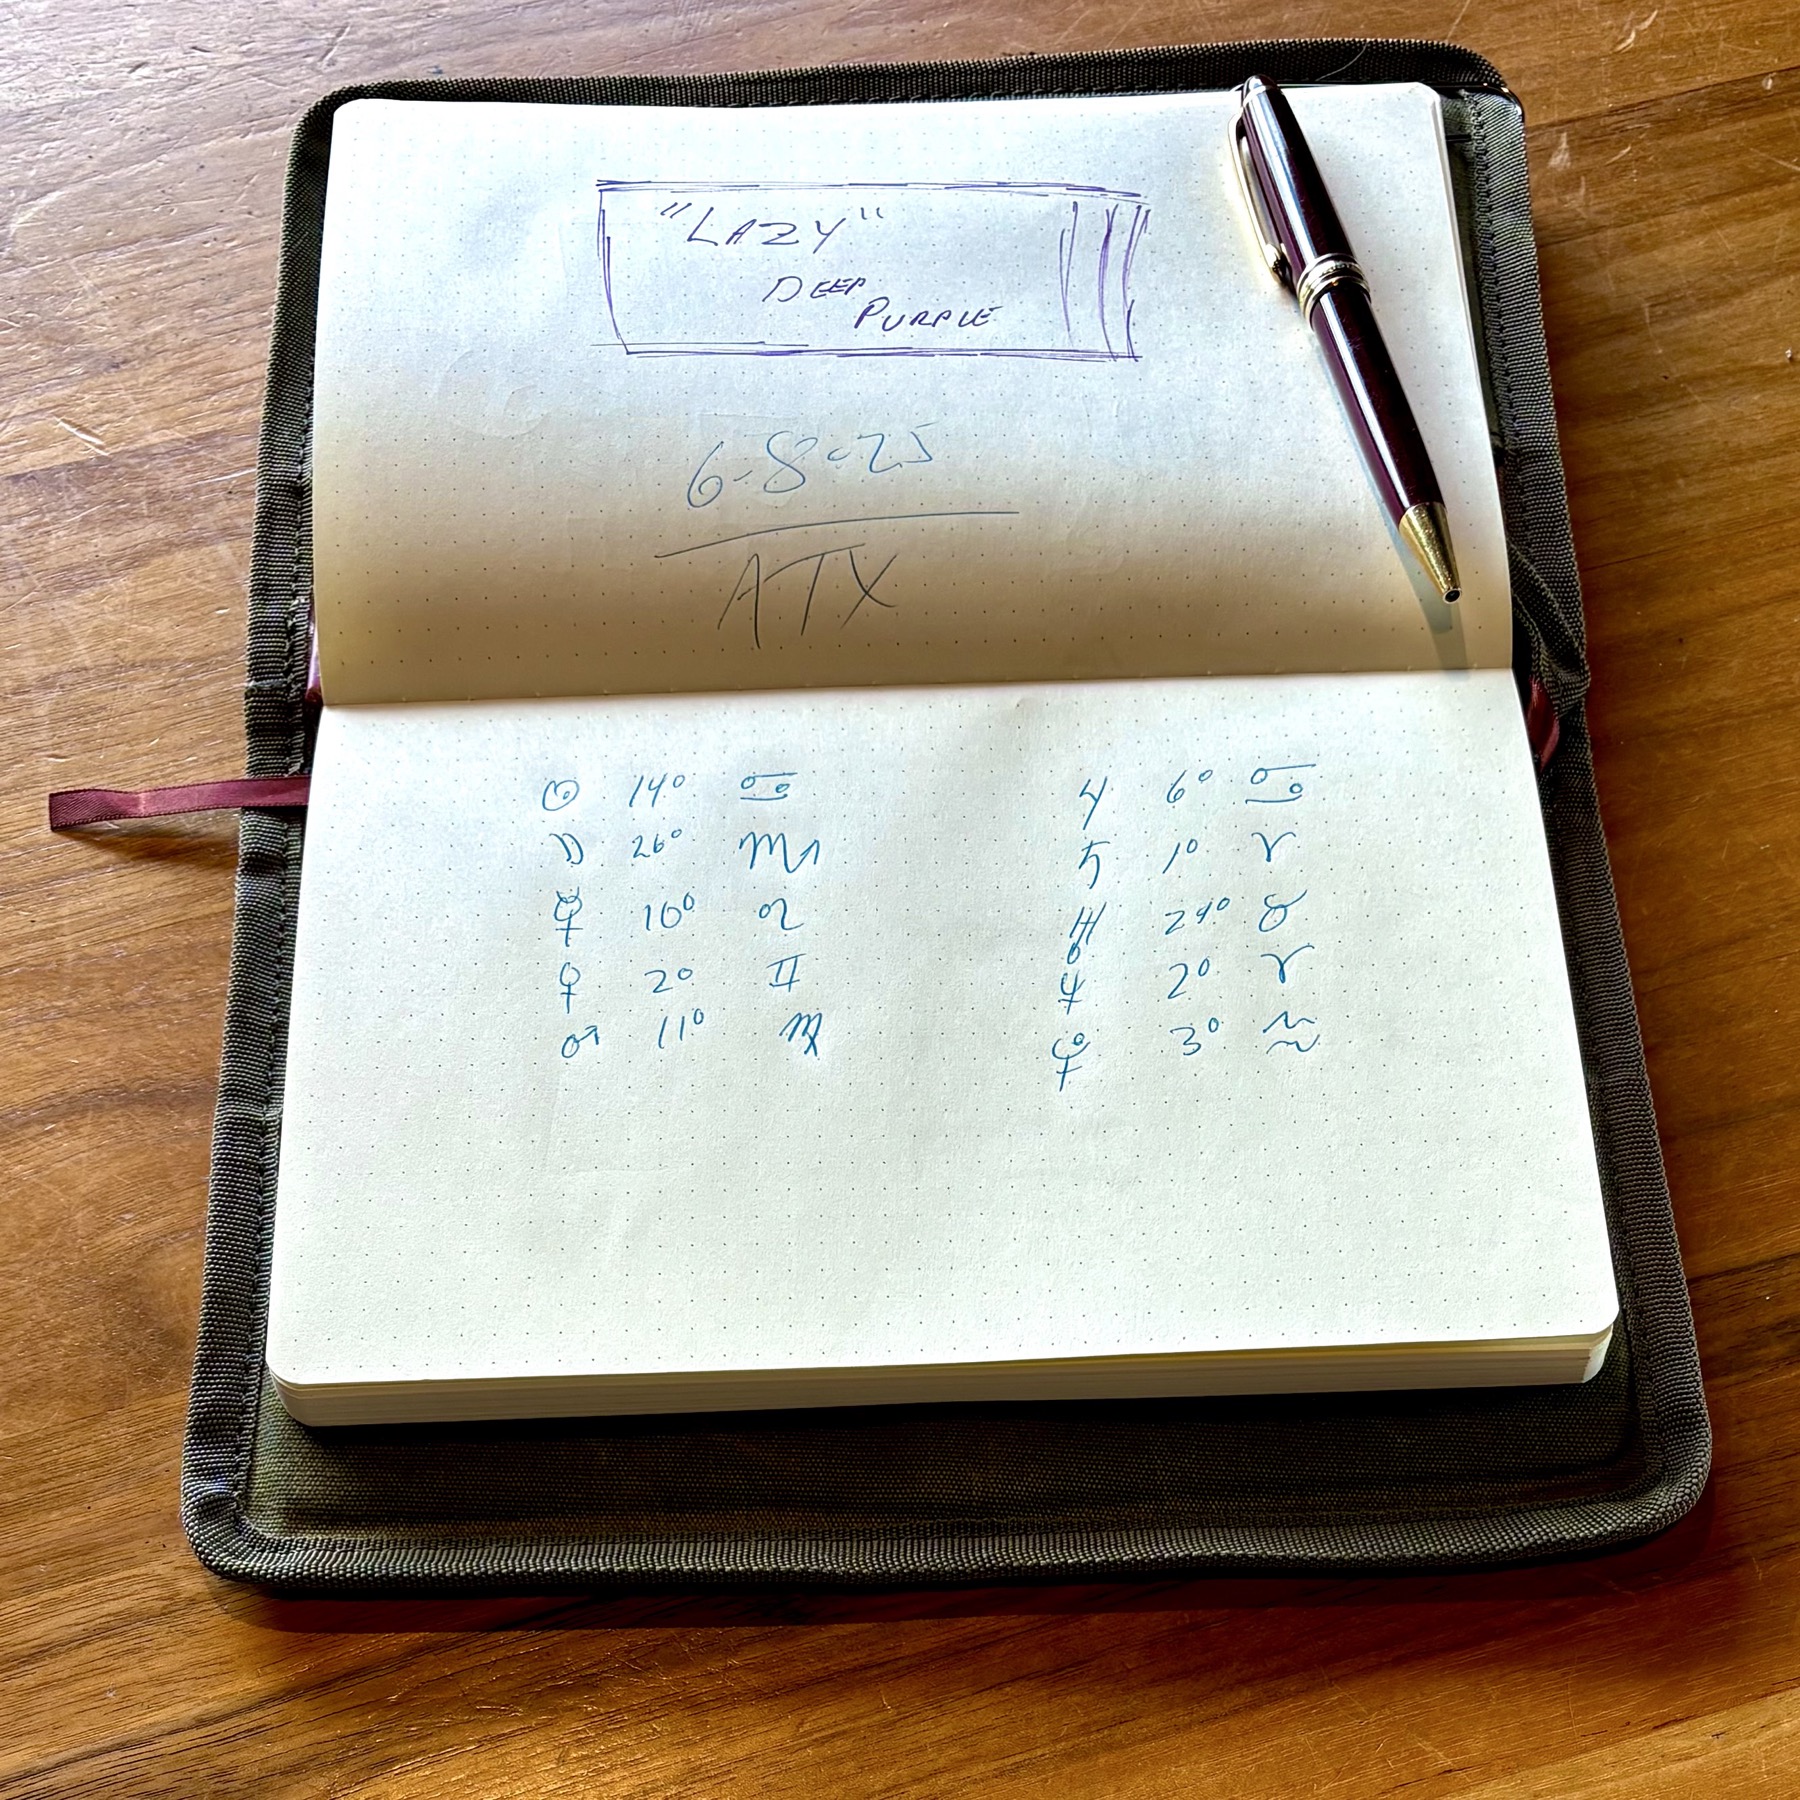 "LAZY"
DEEP
PURPLE
6·8·25
ATX
☉ 14° ♋
☽ 26° ♏
☿ 10° ♌
♀ 2° ♊
♂ 11° ♍
♃ 6° ♋
♄ 1° ♈
♅ 29° ♉
♆ 2° ♈
♇ 3° ♒